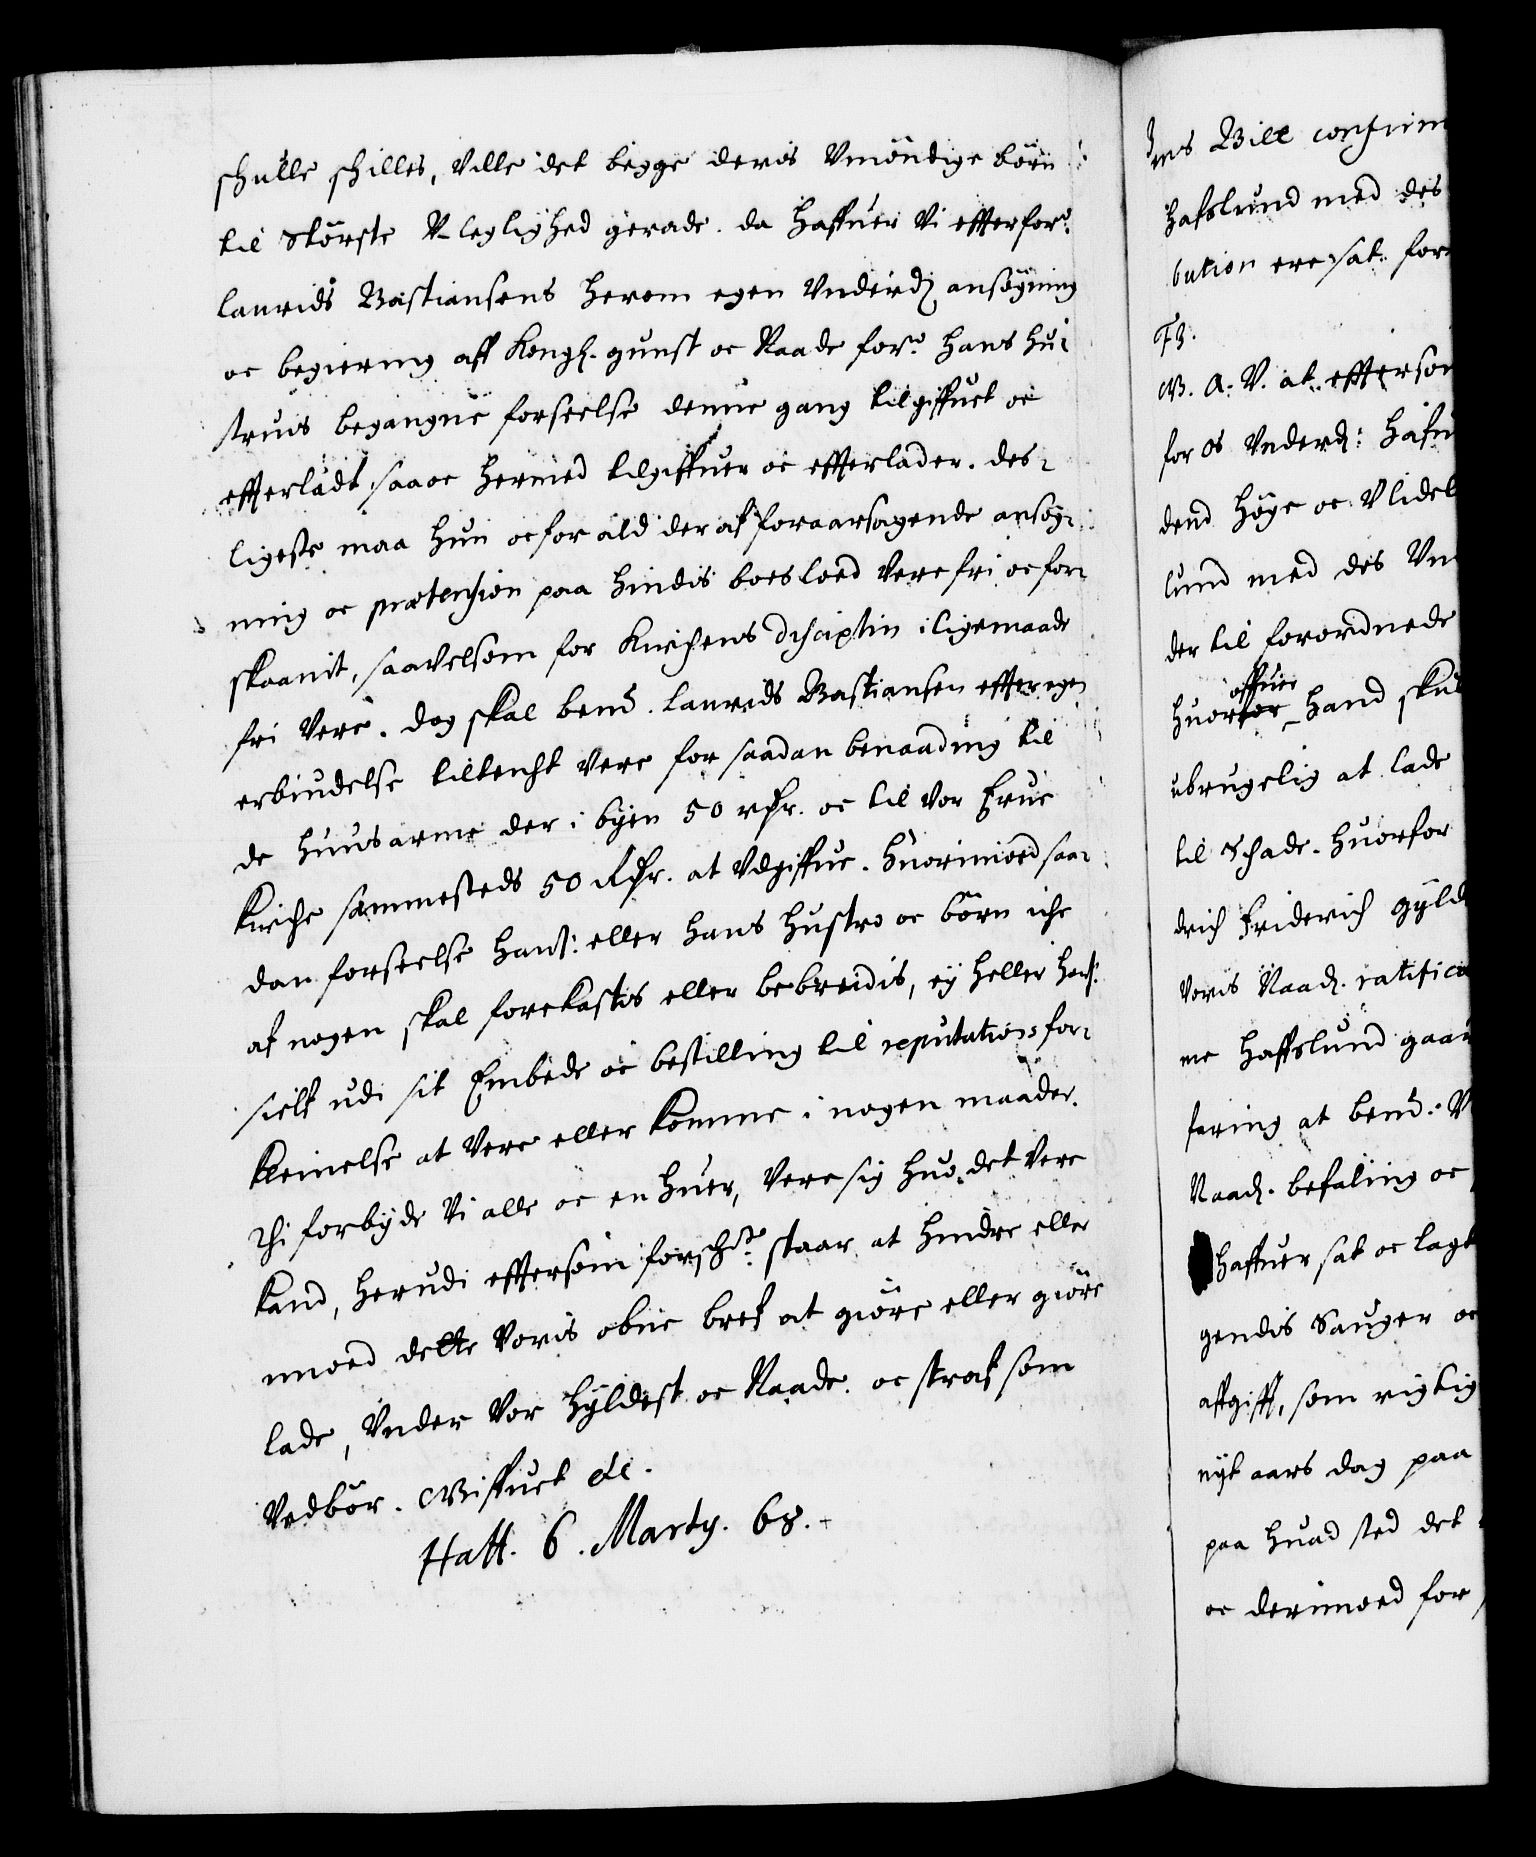 schulle schilles, Ville det begge deris Vmöndige börn
til Störste V-leglighed gerade. da Haffuer Vi effter for:
Laurids Bastiansens herom egen Vnderd: ansögning
oc begiering aff Kongl. gunst oc Naade for: Hans hu-
struis begangne forseelse denne gang tilgiffuet oc
effterladt saa oc hermed tilgiffuer oc effterlader. des-
ligeste maa hun oc for ald der af foraarsagende ansög-
ning oc prætension paa hindis boeslaad Vere fri oc for-
skaanit, saavelsom for Kirchens disciplin i ligemaade
fri Vere. dog skal bem.te Laurids Bastiansen effter egen
erbiudelse tiltencht Vere for saadan benaading til
de huusarme der i byen 50 rdr. oc til Vor Frue
Kirche sammesteds 50 Rdr. at Vdgiffue. huorimoed saa-
dan forseelse hans: eller hans hustro oc börn iche
af nogen skal forekastis eller bebreidis, ey heller hans:
sielf udi sit Embede oc bestilling til reputations for-
kleinelse at Vere eller komme i nogen maader.
Thi forbyde Vi alle oc en huer, Vere sig huo det Vere
kand, herudi effterson forsch.te staar at hindre eller
imoed dette Voris obne bref at giöre eller giöre
lade, Vnder Vor hyldest oc Naade. oc straf som
Vedbör. Giffuet etc.
Haff. 6. Marty. 68.
Jens Bille confirm
Hafslund med des
bution ere sat for
F3.
G. A. V. at effterson
for os Vnderd: hafu
dend höge oc Vlidel
lund med des Vn
der til forordnede
offuer
huorfor hand skul
ubrugelig at lade
til Schade. huorfor
drich Friderich Gyld
Voris Naad. ratifica
me Haffslund gaar
faring at bem.te V
Naad. befaling oc
haffuer sat oc lagt
gendis Sauger oc
affgifft, som rigtig
nyt aars dag paa
paa huad sted det
oc derimoed for